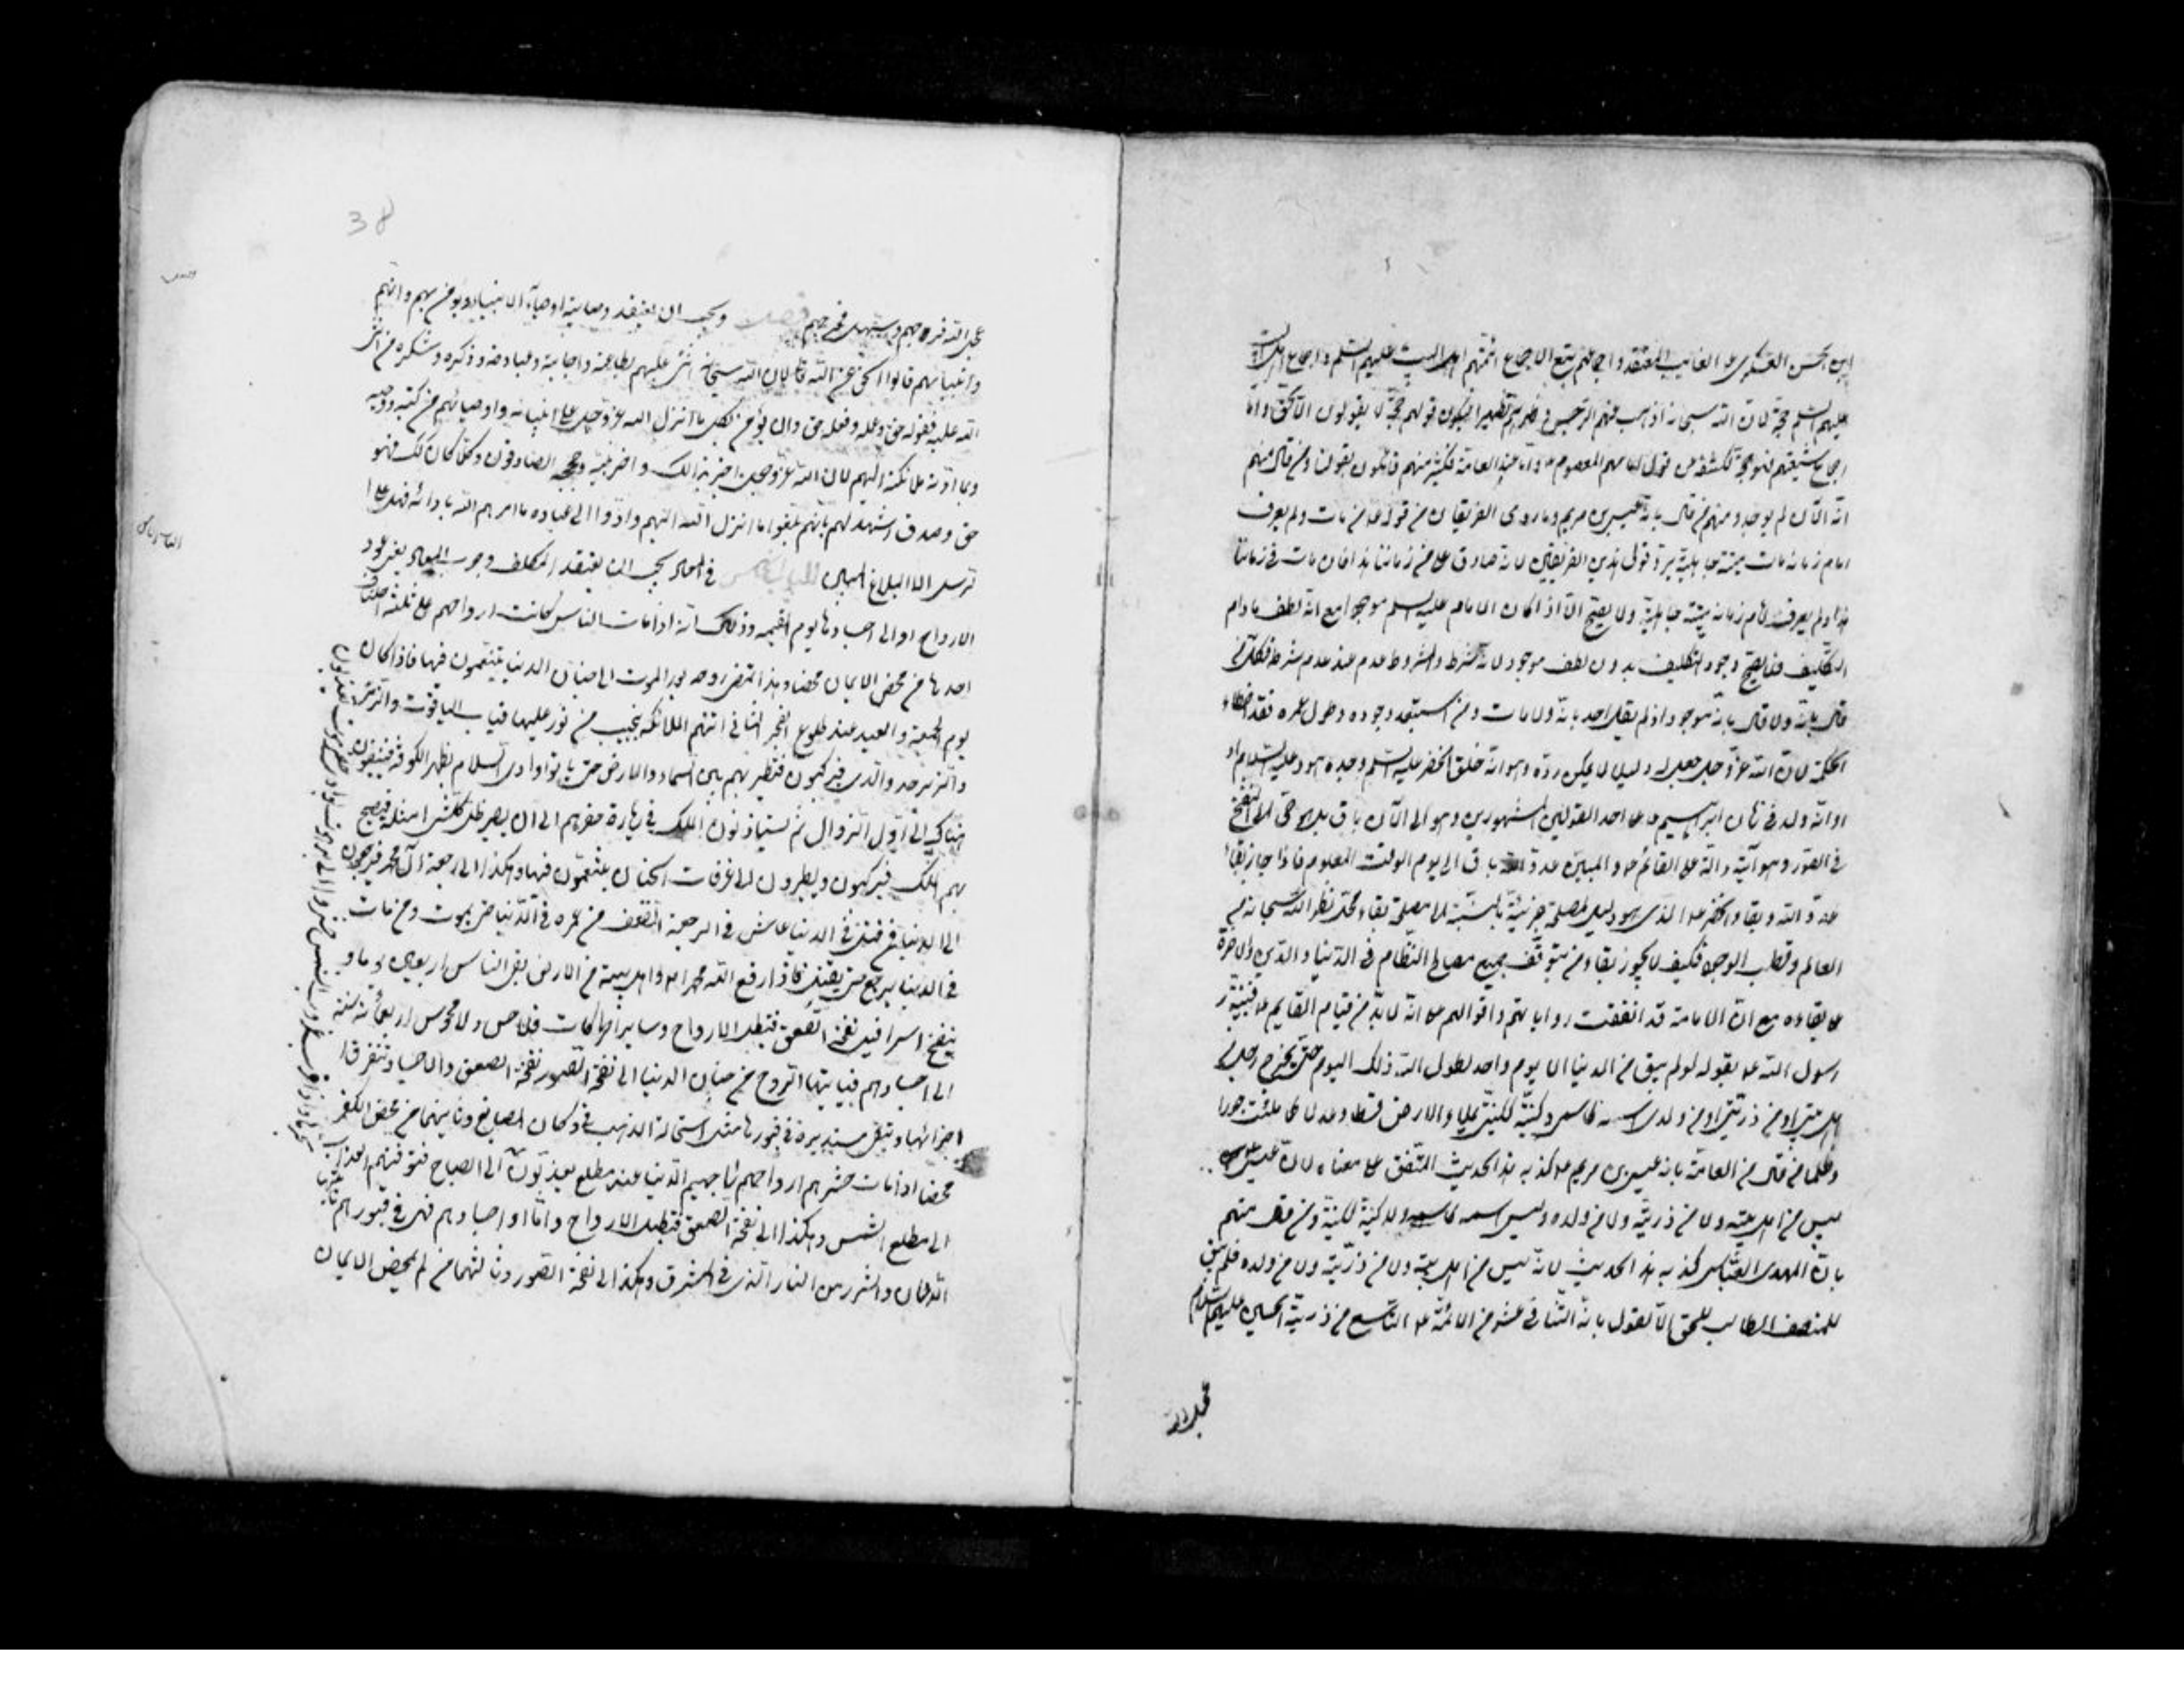 ابن الحسن العسكري ع الغايب المفتقد واجماعهم تبع لاجماع ائمتهم اهل البيت عليهم السلم واجماع اهل البيت
عليهم السلم حجة لان الله سبحانه اذهب عنهم الرجس وطهرهم تطهيرا فيكون قولهم حجة لا يقولون الا الحق واما
اجماع شيعتهم فهو حجة لكشفه عن قول امامهم المعصوم ع واما عند العامة فكثير منهم قائلون بقولنا ومن قال منهم
انه الآن لم يوجد ومنهم من قال بانه عيسى بن مريم وما روى الفريقان من قوله ع من مات ولم يعرف
امام زمانه مات ميتة جاهلية يرد قول هذين الفريقين لانه صادق على من زماننا هذا فان مات في زماننا
هذا ولم يعرف امام زمانه ميتة جاهلية ولا يصح الا اذا كان الامام عليه السلم موجودا مع انه لطف مادام
التكليف فلا يصح وجود التكليف بدون لطف موجود لانه شرط والمشروط عدم عند عدم شرطه فكل من
قال بانه ولد قال بانه موجود اذ لم يقل احد بانه ولد مات ومن استبعد وجوده وطول عمره فقد اخطاء
الحكمة لان الله عز وجل جعل له دليلا لا يمكن رده وهو انه خلق الخضر عليه السلم وجده هود عليه السلام او
او انه ولد في زمان ابراهيم ع على احد القولين المشهورين وهو الى الآن باق بل هو حي الى النفخ
في الصور وهو آية دالة على القائم ع والمبس عدو الله باق الى يوم الوقت المعلوم فاذا جاز بقاء
عدو الله وبقاء الخضر ع الذي هو دليل لمصلحة جزئية بالنسبة الى مصلحة بقاء محل نظر الله سبحانه من
العالم وقطب الوجود فكيف لا يجوز بقاء من يتوقف جميع مصالح النظام في الدنيا والدين والاخرة
على بقاءه مع ان الامة قد اتفقت رواياتهم واقوالهم على انه لا بد من قيام القايم ع فنبه
رسول الله ع بقوله لو لم يبق من الدنيا الا يوم واحد لطول الله ذلك اليوم حتى يخرج رجل من
اهل بيتي او من ذريتي او من ولدي اسمه كاسمي وكنيته ككنيتي يملاء الارض قسطا وعدلا كما ملئت جورا
وظلما فمن قال من العامة بانه عيسى بن مريم ع كذبه هذا الحديث المتفق على معناه لان عيسى
ليس من اهل بيته ولا من ذريته ولا من ولده وليس اسمه كاسمه ولا كنيته ككنيته ومن قال منهم
بان المهدي العباسي كذبه هذا الحديث لانه ليس من اهل بيته ولا من ذريته ولا من ولده فلم يبق
للمنصف الطالب للحق الا القول بانه الثاني عشر من الائمة ع التاسع من ذرية الحسين عليهم السلام
عجل الله
38
عجل الله فرجهم وسهل مخرجهم فصل ويجب ان يعتقد وصاية اوصياء الانبياء ويؤمن بهم وانهم
وانبيائهم قالوا الحق عن الله تعالى لان الله سبحانه اثنى عليهم بطاعته واجابته وعبادته وذكره وشكره من اثنى
الله عليه فقوله حق وعمله وفعله حق وان يؤمن بكل ما انزل الله عز وجل على انبيائه واوصيائهم من كتبه ووحيه
وبما ادته ملائكته اليهم لان الله عز وجل اخبر بذلك واخبر نبيه وحججه الصادقون وكلما كان كذلك فهو
حق وصدق اشهد لهم بانهم بلغوا ما انزل الله اليهم وادوا الى عباده ما امرهم الله بادائه فهل على ا
لرسل الا البلاغ المبين في المعاد يجب ان يعتقد المكلف وجوب المعاد يعني عود
الارواح الى اجسادها يوم القيمة وذلك انه اذا مات الناس كانت ارواحهم على ثلثة اصناف
احدها من محض الايمان محضا وهذا تمضي روحه بعد الموت الى جنان الدنيا يتنعمون فيها فاذا كان
يوم الجمعة والعيد عند طلوع الفجر الثاني اتتهم الملائكة بنجب من نور عليها قباب الياقوت والزمرد
والزبرجد والدر فيركبون فتطير بهم بين السماء والارض حتى ياتوا وادي السلام بظهر الكوفة فيبقون
هناك الى اول الزوال ثم يستاذنون الملك في زيارة حفرهم الى ان يصير ظل كلشئ مثله فيصيح
بهم الملك فيركبون ويطيرون الى غرفات الجنان يتنعمون فيها وهكذا الى رجعة آل محمد فيرجعون
الى الدنيا فمن قتل في الدنيا عاش في الرجعة الضعف من عمره في الدنيا حتى يموت ومن مات
في الدنيا يرجع حتى يقتل فاذا رفع الله محمدا واله واهل بيته من الارض بقي الناس اربعين يوما و
ينفخ اسرافيل نفخة الصعق فتبطل الارواح وساير الحركات فلا حس ولا محسوس اربعمائة سنة
الى اجسادهم فيتنبها الروح من جنان الدنيا الى نفخة الصور نفخة الصعق والاجساد تتفرق ا
جزائها وتبقى مستديرة في قبورها مثل استحالة الذهب في دكان الصايغ وثانيهما من محض الكفر
محضا اذا مات حشرهم ارواحهم الى جهيم الدنيا عند مطلع يعذبون الى الصباح فتوقيهم العذاب
الى مطلع الشمس وهكذا الى نفخة الصعق فتبطل الارواح واما اجسادهم فهي في قبورهم
الدخان والشرر من النار التي في المشرق وهكذا الى نفخة الصور وثالثهما من لم يمحض الايمان